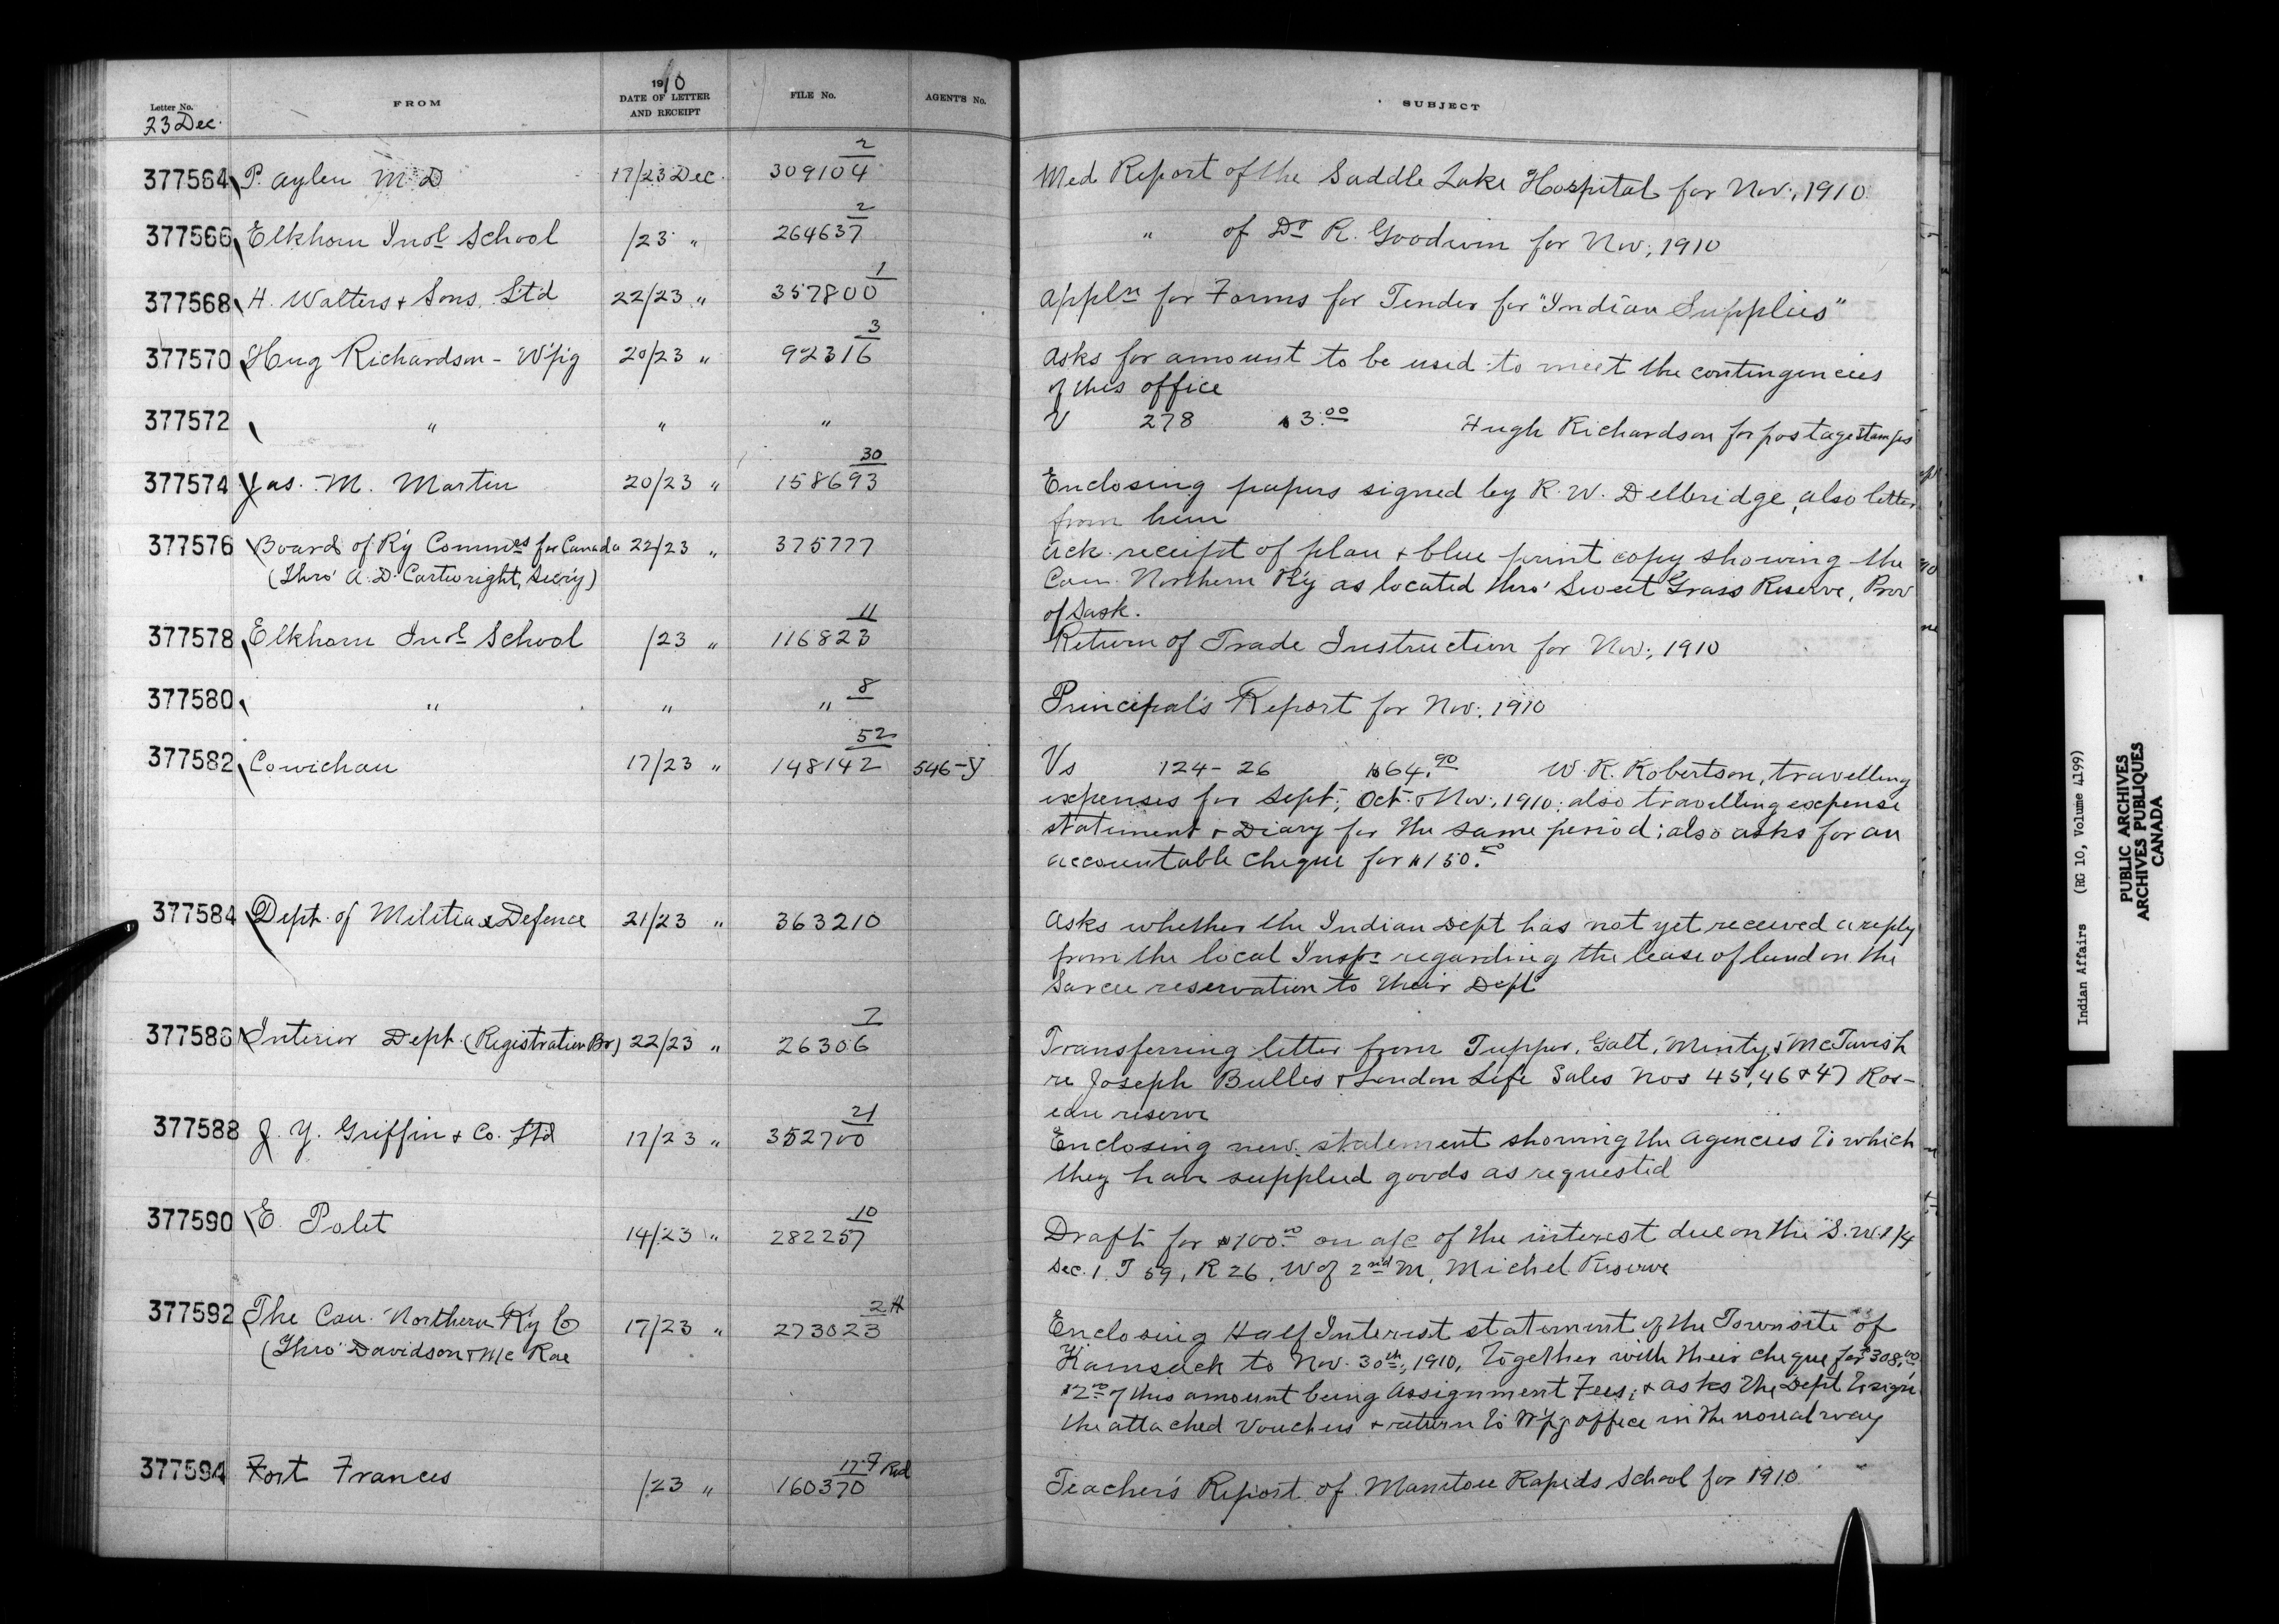 1910
Letter No. FROM DATE OF LETTER AND RECEIPT FILE No. AGENT'S No. SUBJECT
23 Dec.
377564 P. Aylen M D 17/23 Dec. 309104 2 Med Report of the Saddle Lake Hospital for Nov., 1910
377566 Elkhorn Indl School /23 " 264637 2 " of Dr R. Goodwin for Nov., 1910
377568 H. Walters & Sons, Ltd 22/23 " 357800 1 Appln for Forms for Tender for "Indian Supplies"
377570 Hug Richardson - W'pg 20/23 " 92316 3 Asks for amount to be used to meet the contingencies
of this office
377572 " " " V 278 $3.00 Hugh Richardson for postage stamps
377574 Jas. M. Martin 20/23 " 158693 30 Enclosing papers signed by R. W. Delbridge, also letter
from him
377576 Board of Ry Commrs for Canada 22/23 " 375777 Ack. receipt of plan & blue print copy showing the
(Thro' A. D. Cartwright, Secy) Can. Northern Ry as located thro' Sweet Grass Reserve, Prov
of Sask.
377578 Elkhorn Indl School /23 " 116823 11 Return of Trade Instruction for Nov., 1910
377580 " " " 8 Principal's Report for Nov., 1910
377582 Cowichan 17/23 " 148142 52 546-J Vs 124-26 $64.90 W. R. Robertson, travelling
expenses for Sept., Oct. & Nov., 1910; also travelling expense
statement & Diary for the same period; also asks for an
accountable cheque for $150.00
377584 Dept. of Militia & Defence 21/23 " 363210 Asks whether the Indian Dept has not yet received a reply
from the local Inspr regarding the lease of land on the
Sarcee reservation to their Dept
377586 Interior Dept. (Registration Br) 22/23 " 26306 7 Transferring letter from Tupper, Galt, Minty & McTavish
re Joseph Bulles & London Life Sales Nos 45, 46 & 47 Ros-
eau reserve
377588 J. Y. Griffin & Co. Ltd 17/23 " 352700 21 Enclosing new statement showing the agencies to which
they have supplied goods as requested
377590 E. Polet 14/23 " 282257 10 Draft for $100.00 on a/c of the interest due on the S.W. 1/4
Sec. 1, T 59, R 26, W of 2nd M, Michel Reserve
377592 The Can. Northern Ry Co 17/23 " 273023 2H Enclosing Half Interest statement of the Townsite of
(Thro' Davidson & McRae Kamsack to Nov. 30th, 1910, together with their cheque for $308.00
$2.00 of this amount being Assignment Fees; & asks the Dept to sign
the attached Vouchers & return to W'pg office in the usual way
377594 Fort Frances /23 " 160370 Red Teacher's Report of Manitou Rapids School for 1910
Indian Affairs (RG 10, Volume 4199)
PUBLIC ARCHIVES
ARCHIVES PUBLIQUES
CANADA